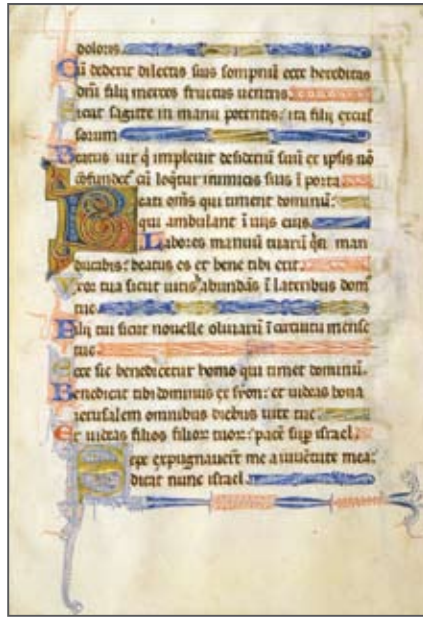 doloris.
Cū dederit dilectis suis sompnū ecce hereditas
dn̄i filij merces fructus uentris.
Sicut sagitte in manu potentis: ita filij excus
sorum
Beatus uir q̇ impleuit desideriū suū ex ipsis nō
cōfundet᷑ cū loq̄tur inimicis suis ī porta.
Beati om̄s qui timent dominū:
qui ambulant ī uijs eius.
Labores manuū tuarū q̄n man
ducabis: beatus es et bene tibi erit.
Uxor tua sicut uitis abundās ī lateribus dom᷒
tue
Filij tui sicut nouelle oliuarū ī circuitu mense
tue.
Ecce sic benedicetur homo qui timet dominū.
Benedicat tibi dominus ex syon: et uideas bona
ierusalem omnibus diebus uite tue.
Et uideas filios filioꝝ tuoꝝ: pacē sup̄ israel.
Sepe expugnauer̄t me a iuuētute mea:
dicat nunc israel.